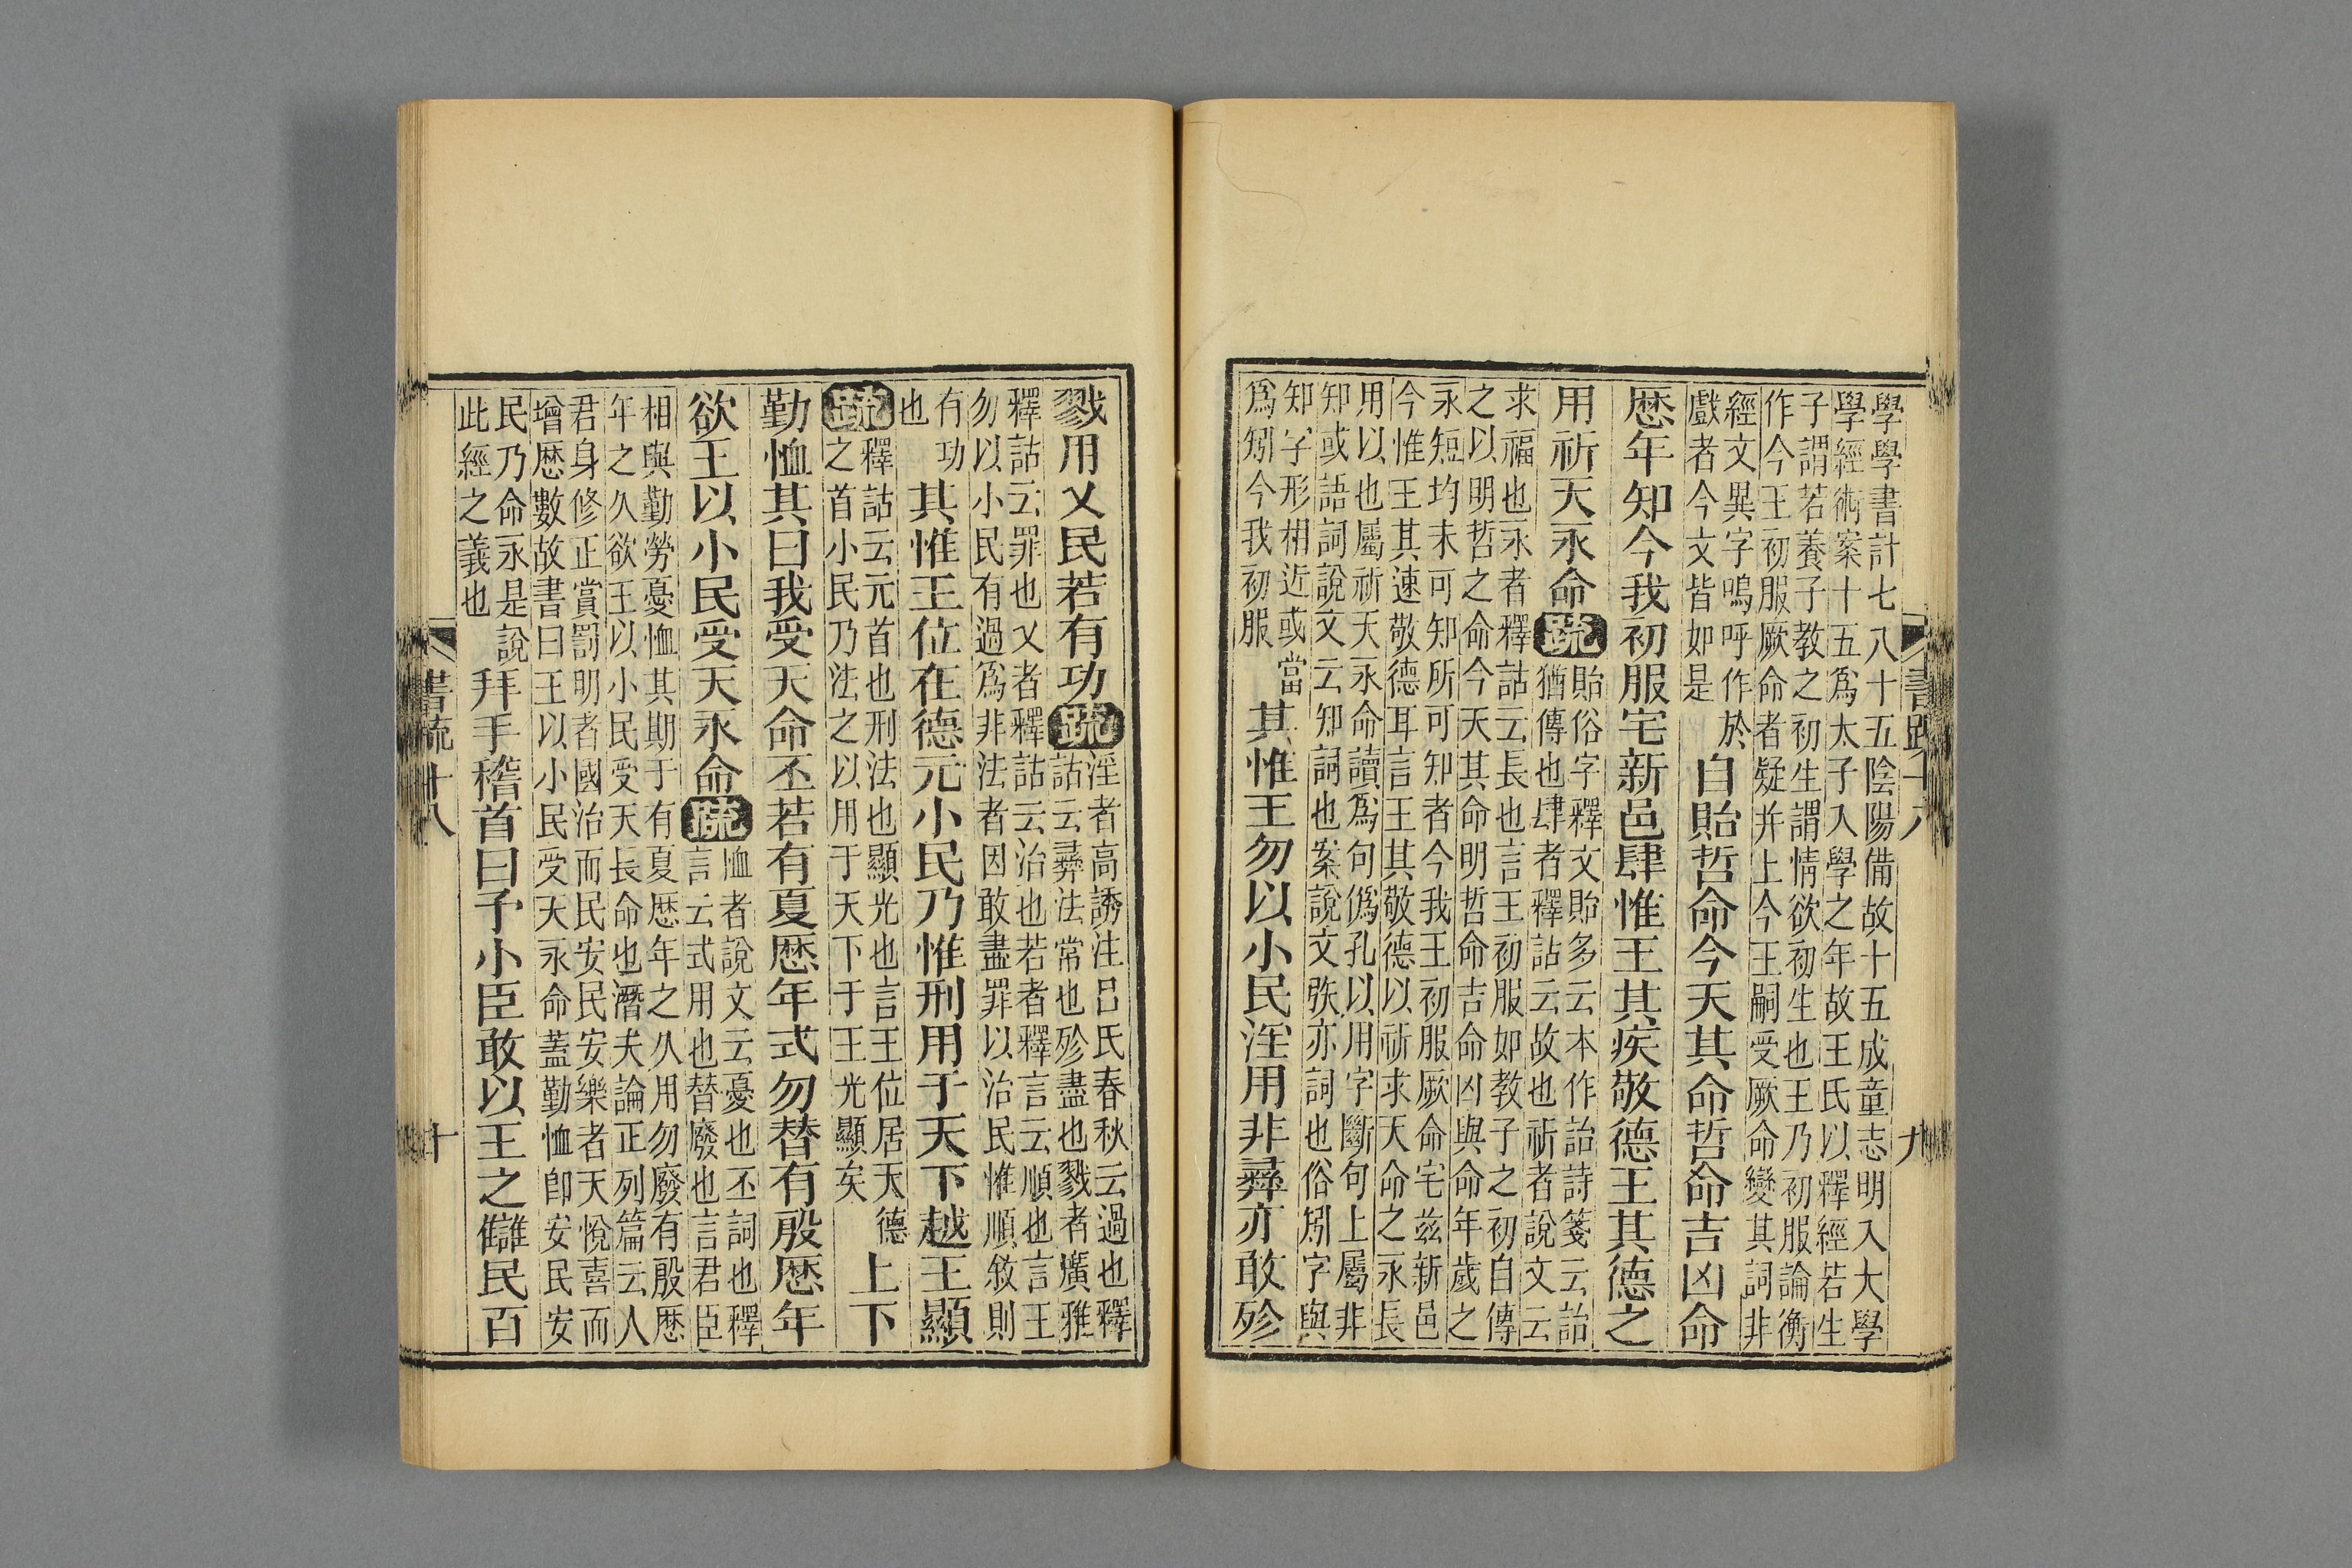 學學書計七八十五陰陽備故十五成童志明入大學
學經術案十五爲太子入學之年故王氏以釋經若生
子謂若養子教之初生謂情欲初生也王乃初服論衡
作今王初服厥命者疑并上今王嗣受厥命變其詞非
經文異字嗚呼作於
戲者今文皆如是
自貽哲命今天其命哲命吉凶命
歷年知今我初服宅新邑肆惟王其疾敬德王其德之
用祈天永命疏
貽俗字釋文貽多云本作詒詩箋云詒
猶傳也肆者釋詁云故也祈者說文云
求福也永者釋詁云長也言王初服如教子之初自傳
之以明哲之命今天其命明哲命吉命凶與命年歲之
永短均未可知所可知者今我王初服厥命宅兹新邑
今惟王其速敬德耳言王其敬德以祈求天命之永長
用以也屬祈天永命讀爲句僞孔以用字斷句上屬非
知或語詞說文云知詞也案說文矤亦詞也俗矧字與
知字形相近或當
爲矧今我初服
其惟王勿以小民淫用非彝亦敢殄
戮用乂民若有功疏
淫者高誘注呂氏春秋云過也釋
詁云彝法常也殄盡也戮者廣雅
釋詁云罪也乂者釋詁云治也若者釋言云順也言王
勿以小民有過爲非法者因敢盡罪以治民惟順敘則
有功
也
其惟王位在德元小民乃惟刑用于天下越王顯
疏
釋詁云元首也刑法也顯光也言王位居天德
之首小民乃法之以用于天下于王光顯矣
上下
勤恤其曰我受天命丕若有夏歷年式勿替有殷歷年
欲王以小民受天永命疏
恤者說文云憂也丕詞也釋
言云式用也替廢也言君臣
相與勤勞憂恤其期于有夏歷年之久用勿廢有殷歷
年之久欲王以小民受天長命也潛夫論正列篇云人
君身修正賞罰明者國治而民安民安樂者天悅喜而
增歷數故書曰王以小民受天永命蓋勤恤卽安民安
民乃命永是說
此經之義也
拜手稽首曰予小臣敢以王之讎民百
書疏十八
九
書疏十八
十